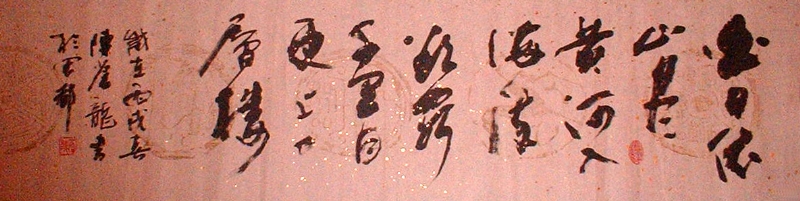 白日依
山尽
黄河入
海流
欲窮
千里目
更上一
層樓
歲在丙戌春
龍書
於都